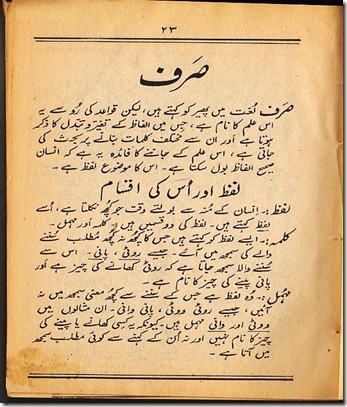 ۲۳
صَرف
صَرف لُغت میں پھیر کو کہتے ہیں، لیکن قواعد کی رُو سے یہ
اس علم کا نام ہے، جس میں الفاظ کے تغیّر و تبدّل کا ذکر
ہوتا ہے اور ان سے مختلف کلمات بنانے پر بحث کی
جاتی ہے، اس علم کے جاننے کا فائدہ یہ ہے کہ انسان
صحیح الفاظ بول سکتا ہے۔ اس کا موضوع لفظ ہے۔
لفظ اور اُس کی اقسام
لفظ :۔ انسان کے مُنہ سے بولتے وقت جو کچھ نکلتا ہے، اُسے
لفظ کہتے ہیں۔ لفظ کی دو قسمیں ہیں، کلمہ اور مہمل۔
کلمہ :۔ ایسے لفظ کو کہتے ہیں جس کا کچھ نہ کچھ مطلب سُننے
والے کی سمجھ میں آئے۔ جیسے روٹی، پانی۔ اس سے
سُننے والا سمجھ جاتا ہے کہ روٹی کھانے کی چیز ہے اور
پانی پینے کی چیز کا نام ہے۔
مہمل :۔ وہ لفظ ہے جس کے سُننے سے کچھ معنی سمجھ میں نہ
آئیں، جیسے روٹی ووٹی، پانی وانی۔ ان مثالوں میں
ووٹی اور وانی مہمل ہیں۔ کیونکہ یہ کسی کھانے یا پینے کی
چیز کا نام نہیں اور نہ اُن کے کہنے سے کوئی مطلب سمجھ
میں آتا ہے۔